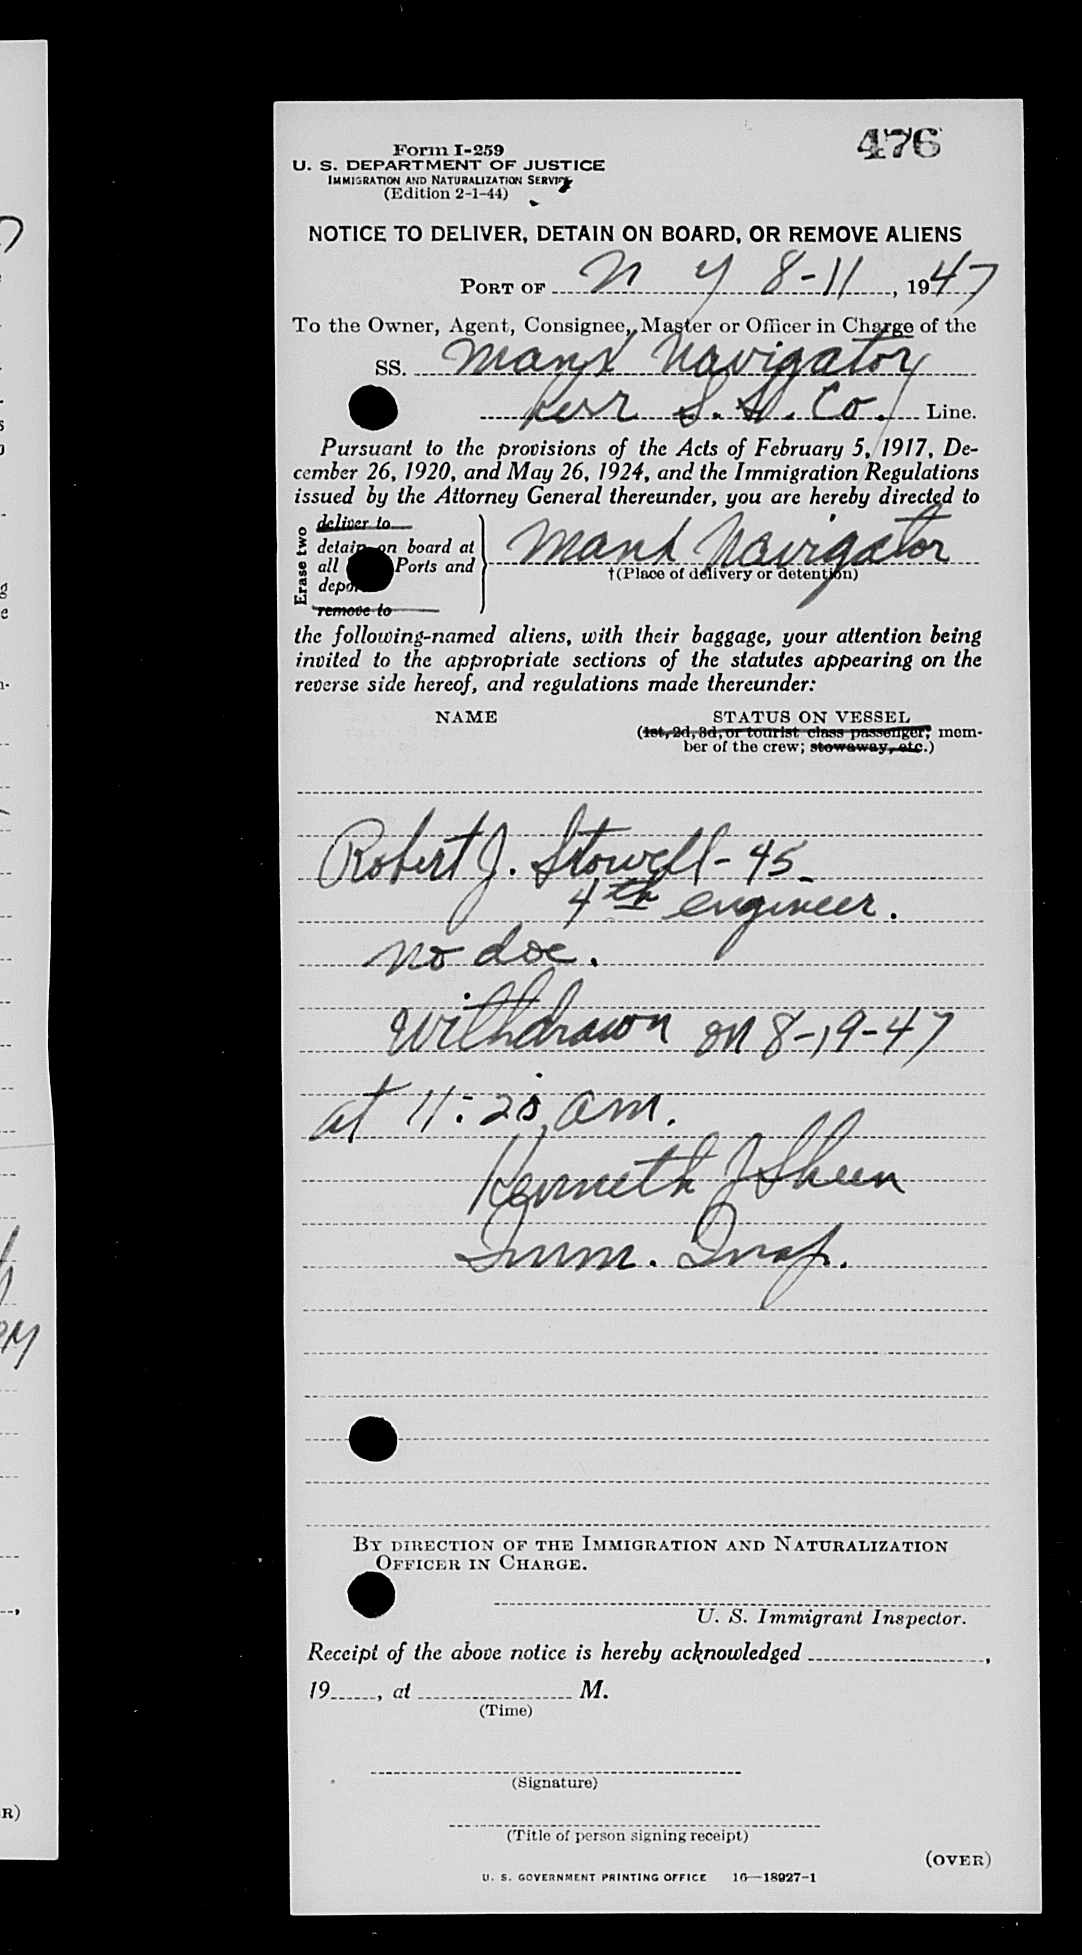 476
Form I-259
U. S. DEPARTMENT OF JUSTICE
IMMIGRATION AND NATURALIZATION SERVICE
(Edition 2-1-44)
NOTICE TO DELIVER, DETAIN ON BOARD, OR REMOVE ALIENS
PORT OF N Y 8-11, 1947
To the Owner, Agent, Consignee, Master or Officer in Charge of the
SS. Manx Navigator
Kerr S. S. Co. Line.
Pursuant to the provisions of the Acts of February 5, 1917, De-
cember 26, 1920, and May 26, 1924, and the Immigration Regulations
issued by the Attorney General thereunder, you are hereby directed to
Erase two
deliver to
detain on board at
all Ports and
remove to
Manx Navigator
†(Place of delivery or detention)
the following-named aliens, with their baggage, your attention being
invited to the appropriate sections of the statutes appearing on the
reverse side hereof, and regulations made thereunder:
NAME STATUS ON VESSEL
(1st, 2d, 3d, or tourist class passenger; mem-
ber of the crew; stowaway, etc.)
Robert J. Stowell - 45
4th engineer.
no doc.
Withdrawn on 8-19-47
at 11:20 am.
Kenneth J Sheen
Imm. Insp.
BY DIRECTION OF THE IMMIGRATION AND NATURALIZATION
OFFICER IN CHARGE.
U. S. Immigrant Inspector.
Receipt of the above notice is hereby acknowledged ,
19 , at M.
(Time)
(Signature)
(Title of person signing receipt)
(OVER)
U. S. GOVERNMENT PRINTING OFFICE 16—18927-1